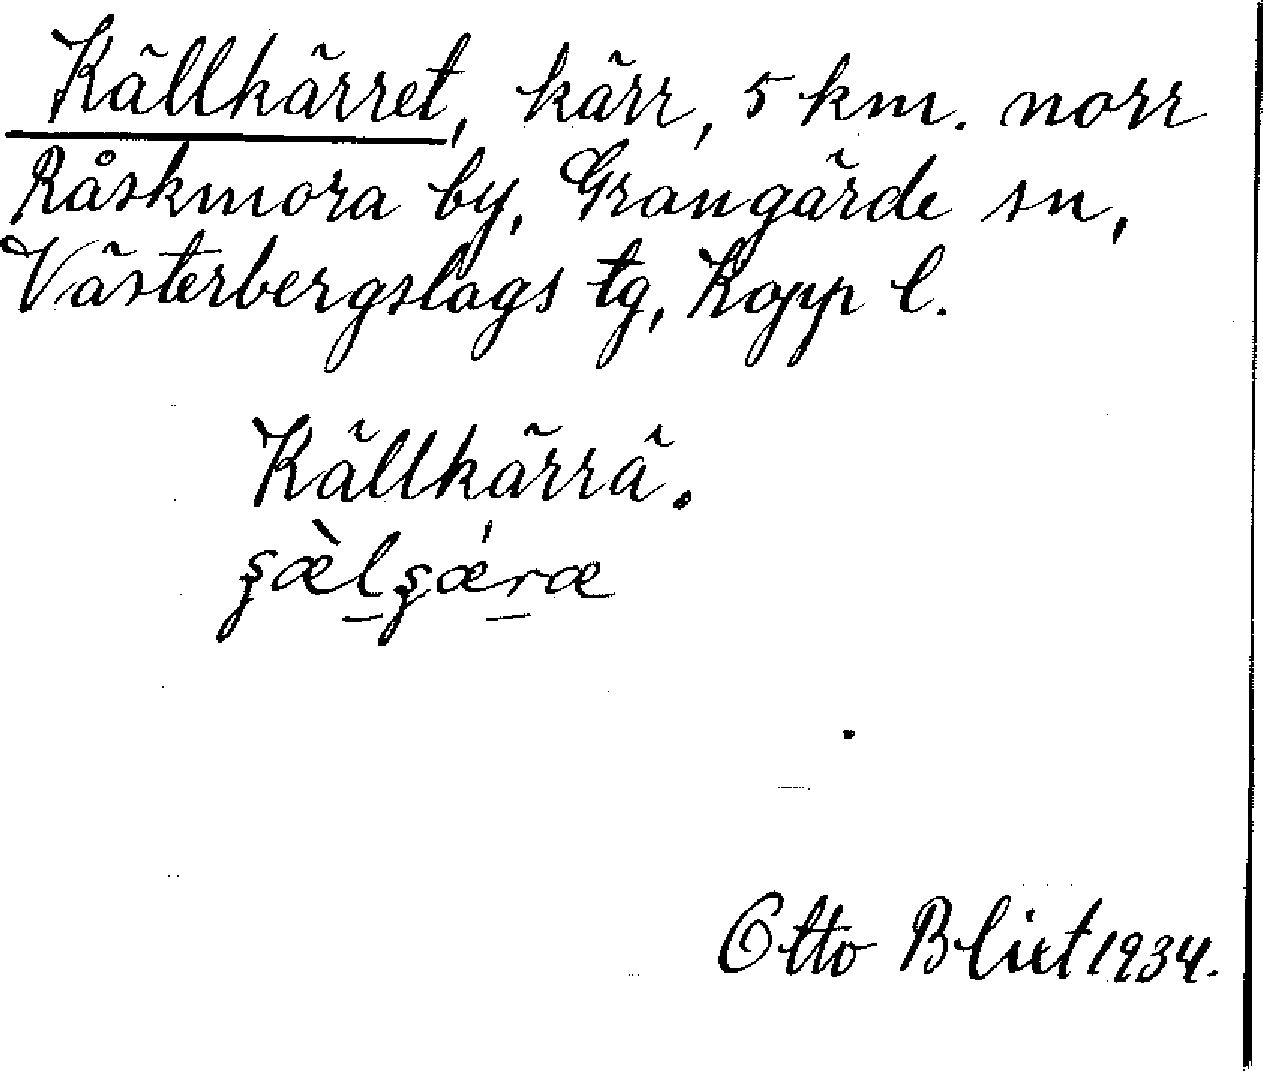 Källkärret, kärr, 5 km. norr
Råskmora by, Grangärde sn,
Västerbergslags tg, Kopp l.
Källkärrä.
Otto Blixt 1934.